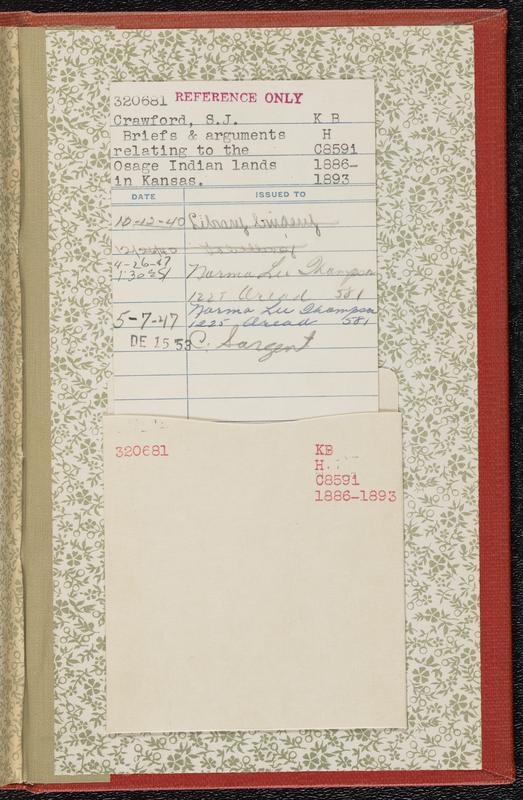 320681 REFERENCE ONLY
Crawford, S.J. K B
Briefs & arguments H
relating to the C859i
Osage Indian lands 1886-
in Kansas. 1893
DATE ISSUED TO
10-12-40 Library
4-26-47
1:30 Norma Lee Thompson
1225 Oread 581
Norma Lee Thompson
5-7-47 1225 Oread 581
DE 15 53 C. Sargent
320681 KB
H
C859i
1886-1893